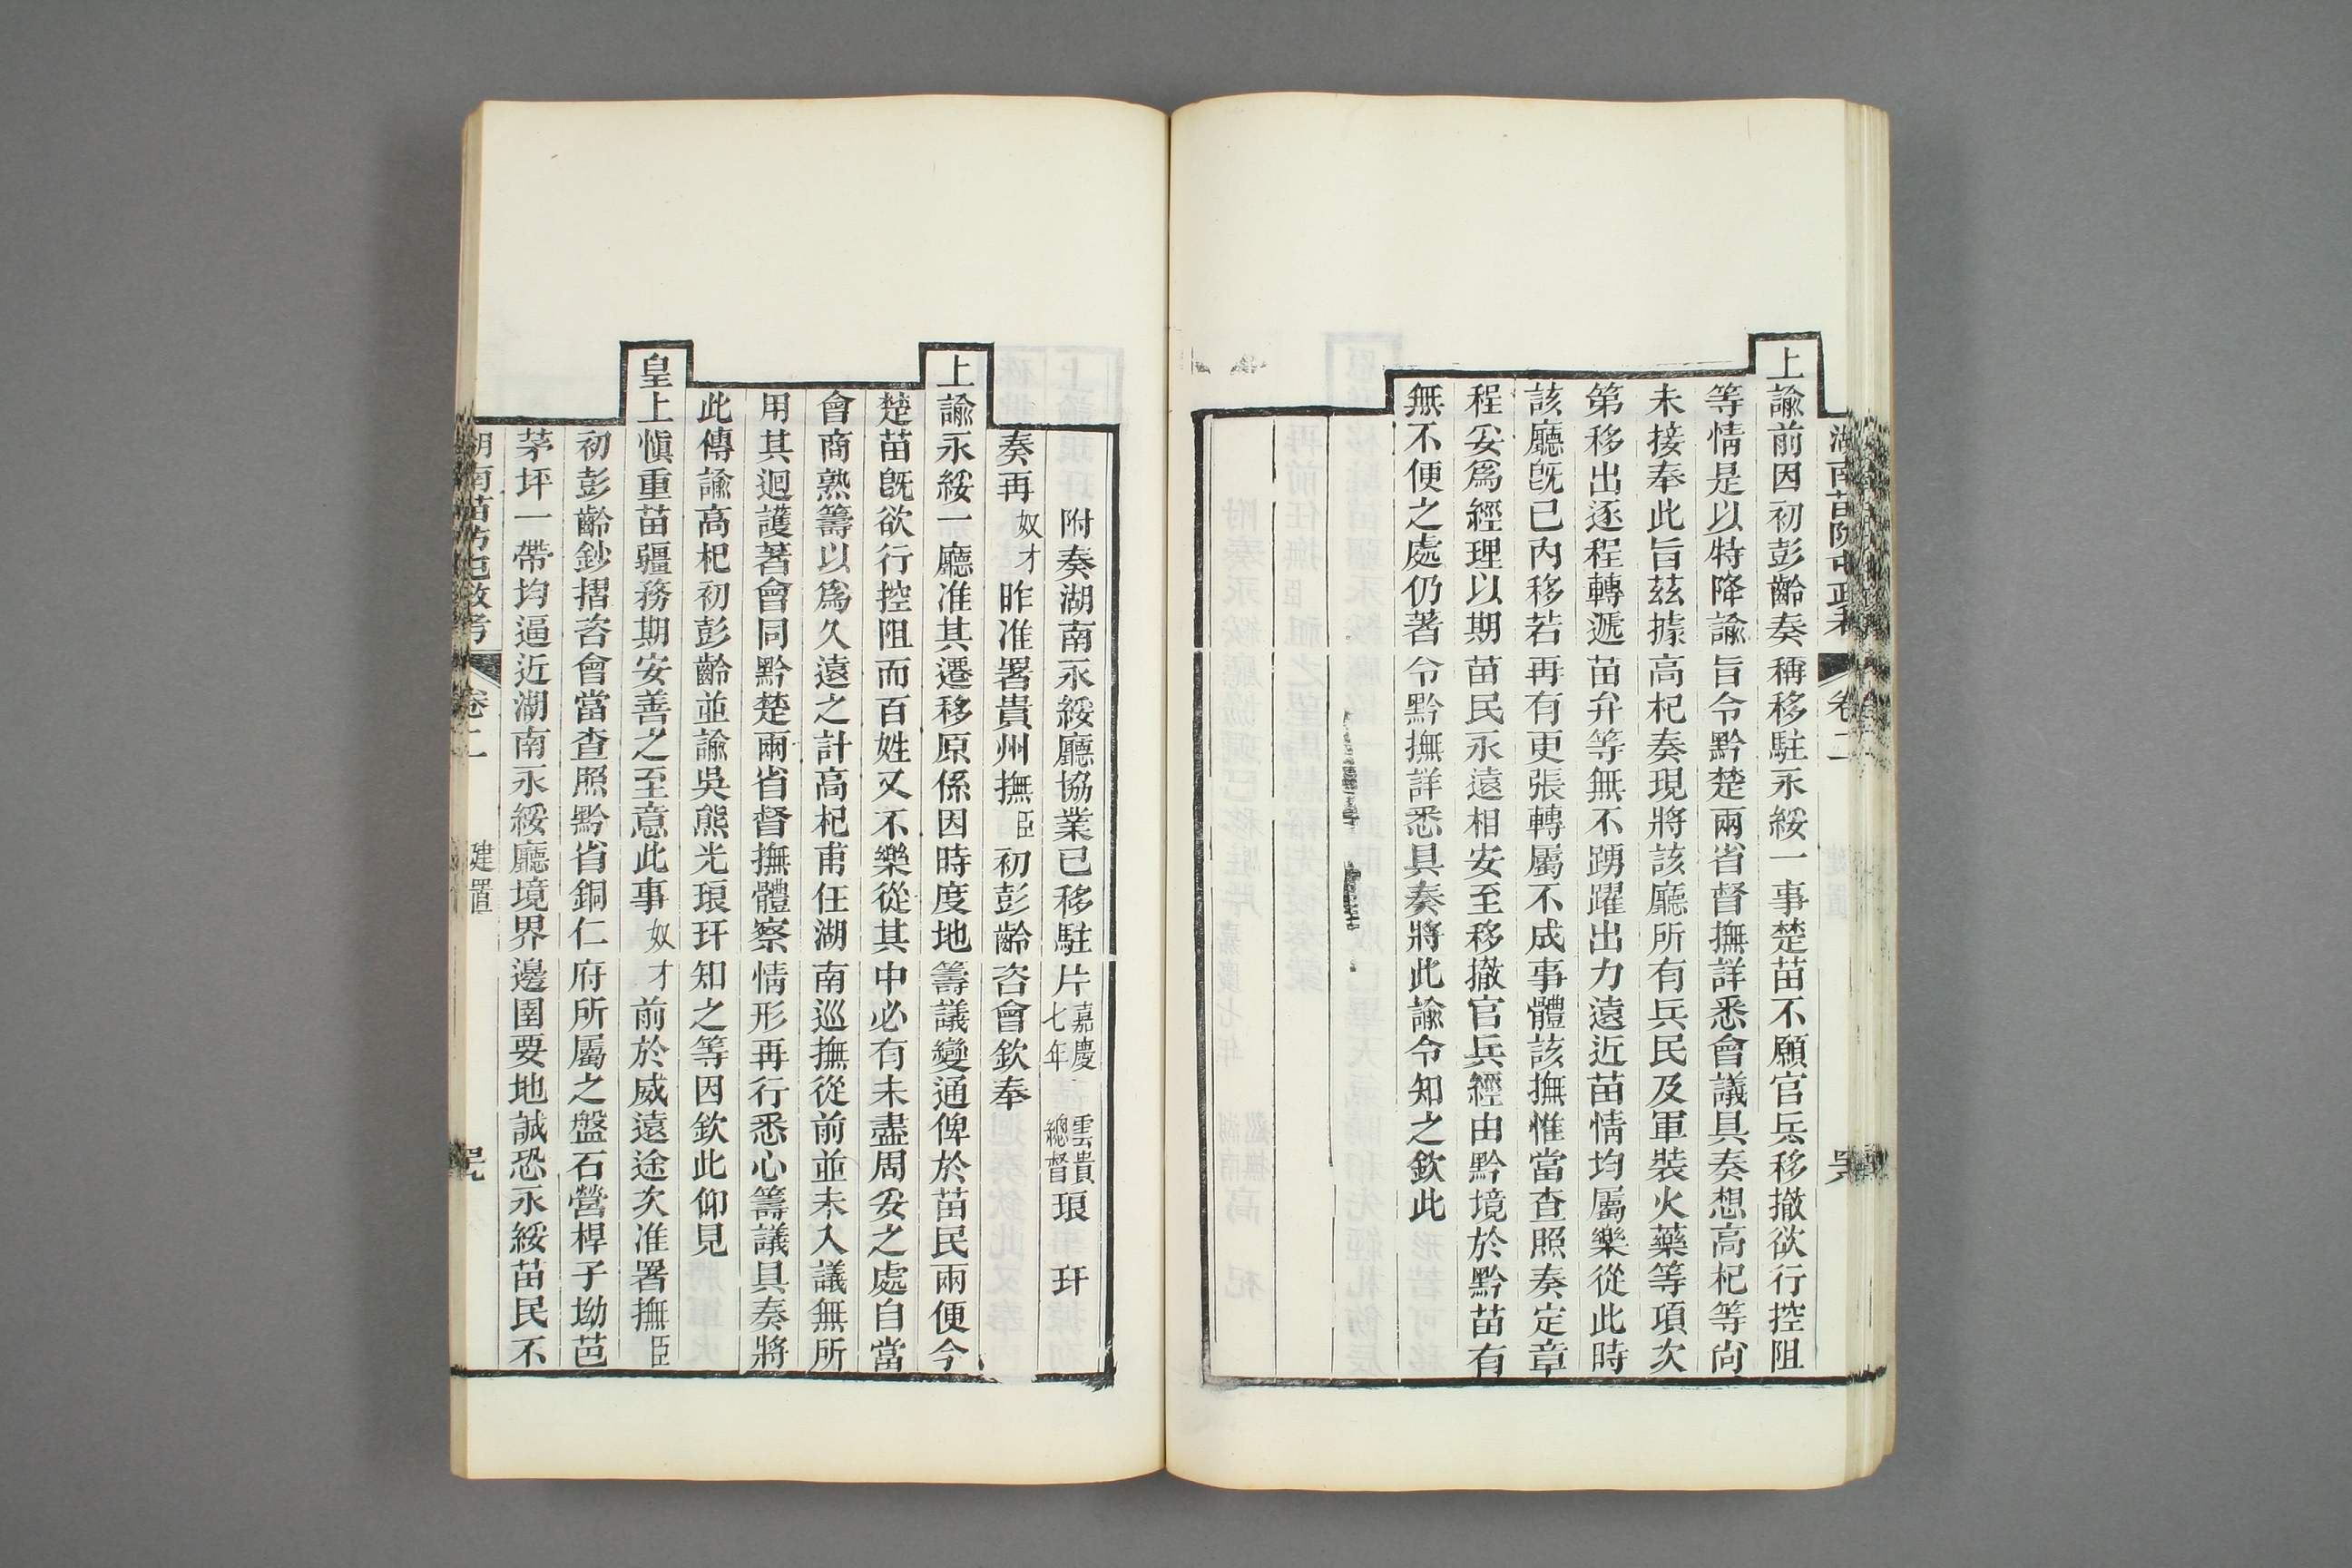 上諭前因初彭齡奏稱移駐永綏一事楚苗不願官兵移撤欲行控阻
等情是以特降諭旨令黔楚兩省督撫詳悉會議具奏想高杞等尙
未接奉此旨茲據高杞奏現將該廳所有兵民及軍裝火藥等項次
第移出逐程轉遞苗弁等無不踴躍出力遠近苗情均屬樂從此時
該廳旣已內移若再有更張轉屬不成事體該撫惟當查照奏定章
程妥爲經理以期苗民永遠相安至移撤官兵經由黔境於黔苗有
無不便之處仍著令黔撫詳悉具奏將此諭令知之欽此
附奏湖南永綏廳協業已移駐片 嘉慶七年 雲貴總督 琅玕
奏再奴才昨准署貴州撫臣初彭齡咨會欽奉
上諭永綏一廳准其遷移原係因時度地籌議變通俾於苗民兩便今
楚苗旣欲行控阻而百姓又不樂從其中必有未盡周妥之處自當
會商熟籌以爲久遠之計高杞甫任湖南巡撫從前並未入議無所
用其迴護著會同黔楚兩省督撫體察情形再行悉心籌議具奏將
此傳諭高杞初彭齡並諭吳熊光琅玕知之等因欽此仰見
皇上愼重苗疆務期安善之至意此事奴才前於威遠途次准署撫臣
初彭齡鈔摺咨會當查照黔省銅仁府所屬之盤石營桿子坳芭
茅坪一帶均逼近湖南永綏廳境界邊圉要地誠恐永綏苗民不
湖南苗防屯政考 卷二 建置